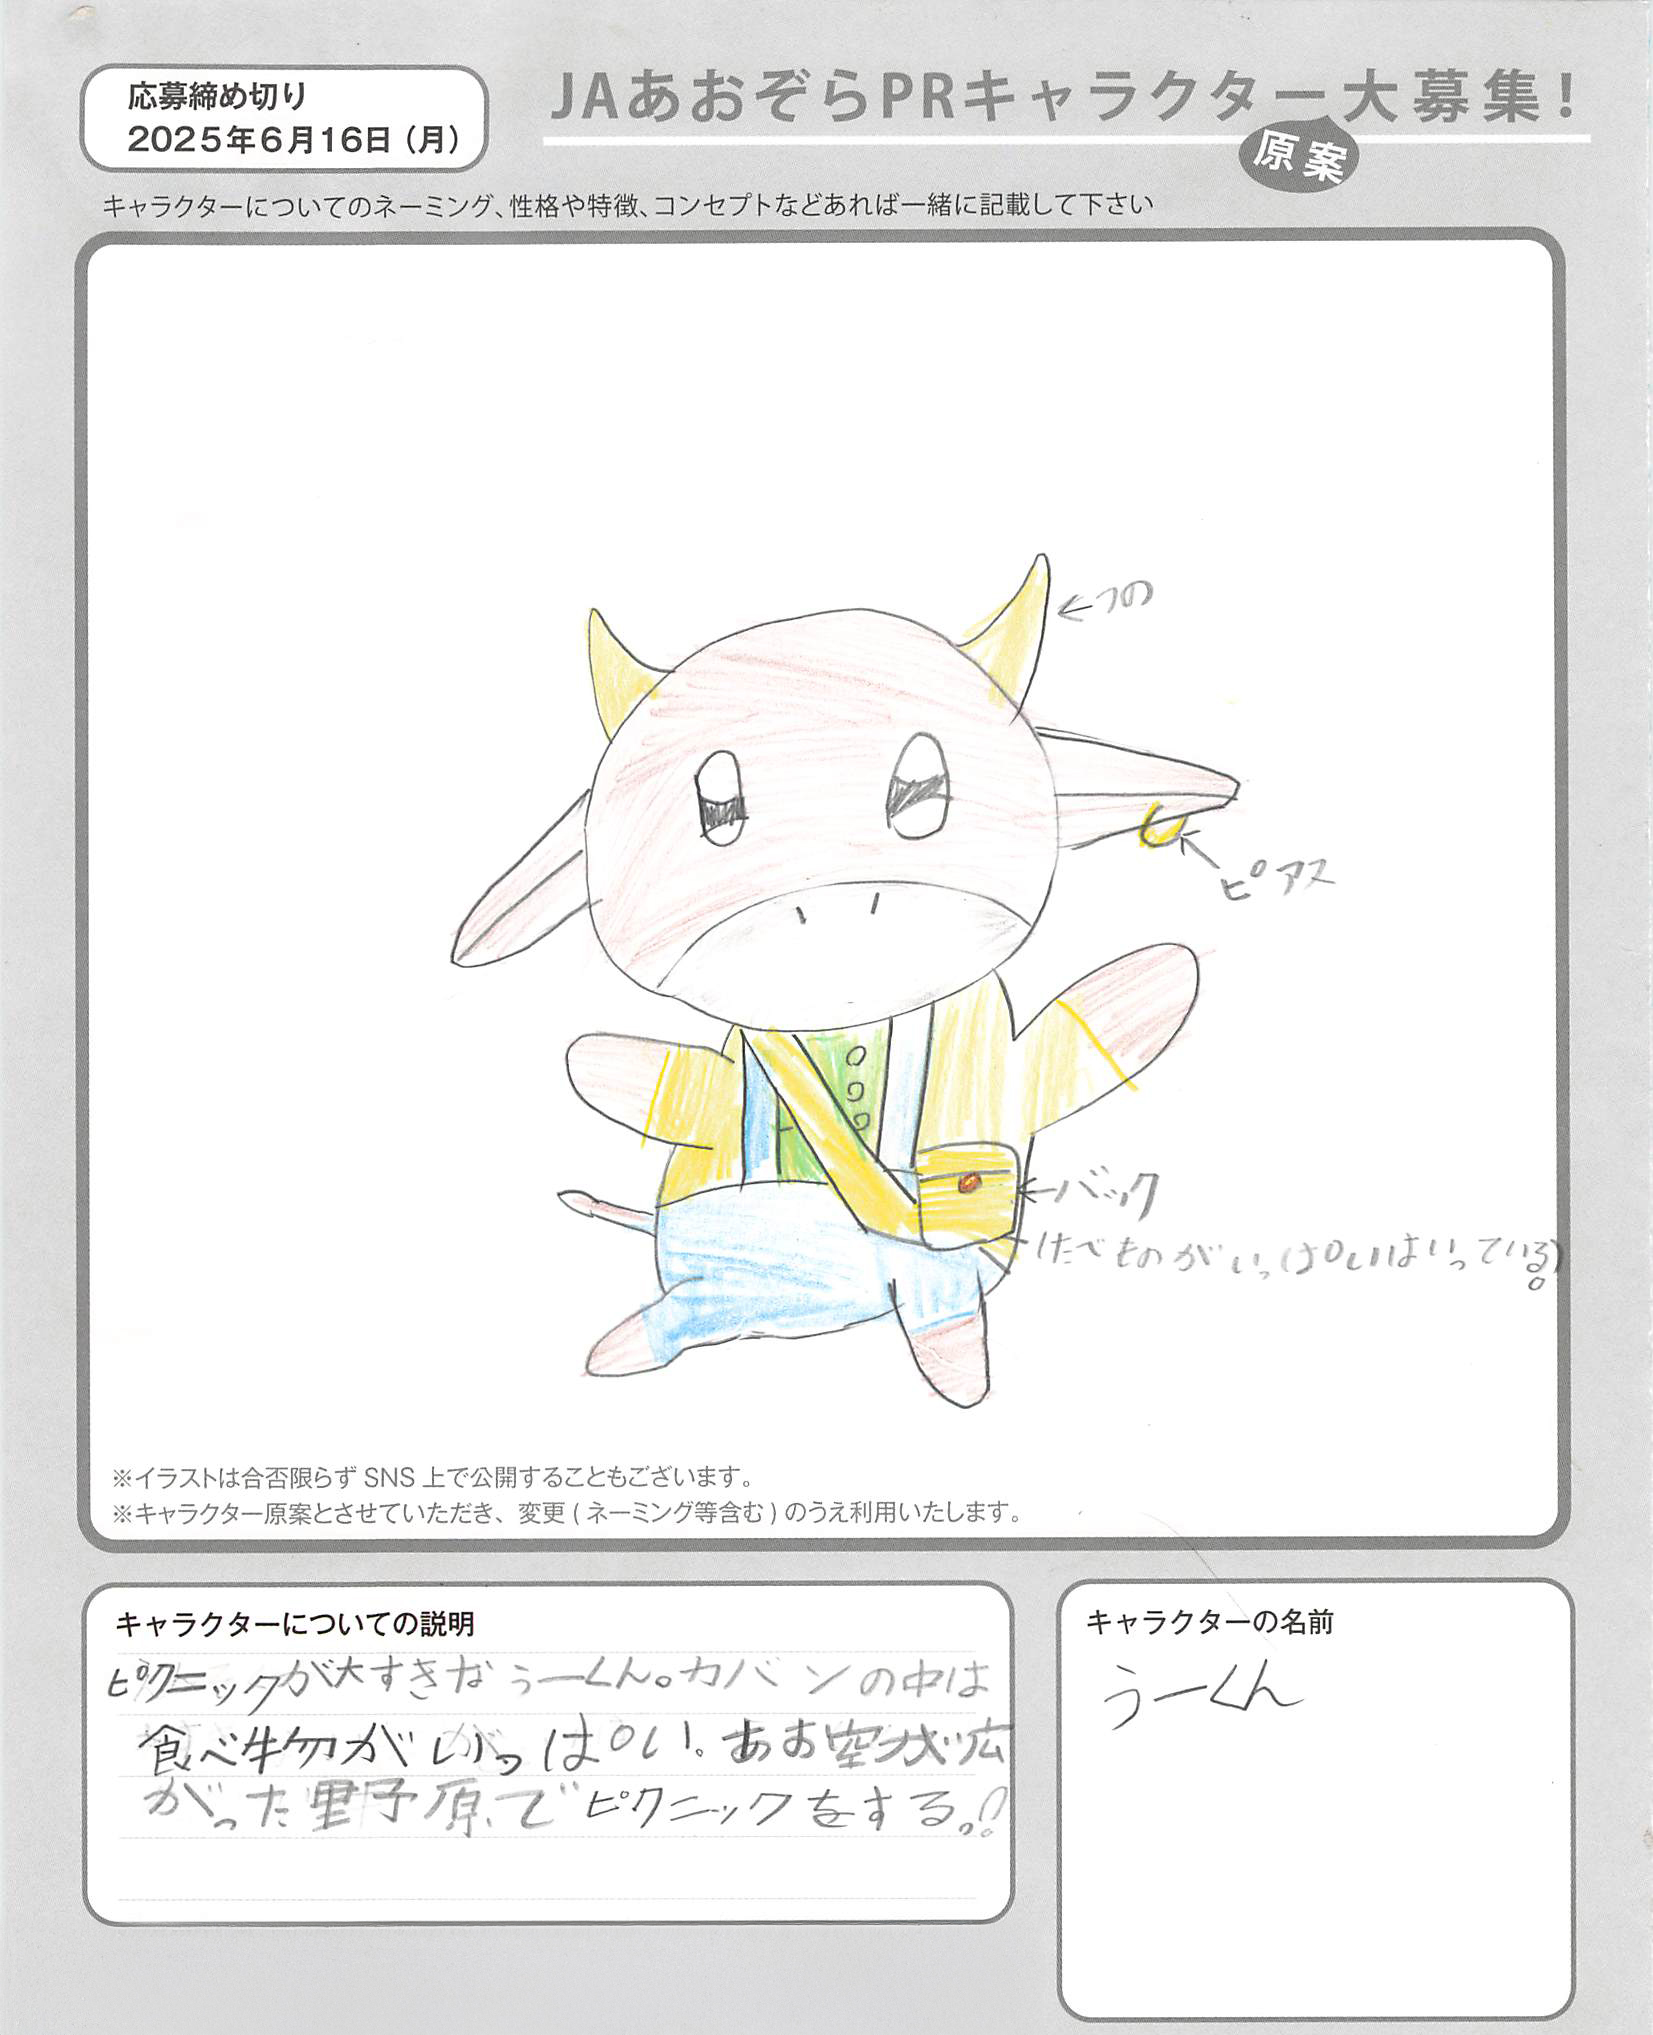 応募締め切り
2025年6月16日（月）
JAあおぞらPRキャラクター大募集！
原案
キャラクターについてのネーミング、性格や特徴、コンセプトなどあれば一緒に記載して下さい
←つの
ピアス
←バック
(たべものがいっぱいはいっている。)
※イラストは合否限らず SNS 上で公開することもございます。
※キャラクター原案とさせていただき、変更 ( ネーミング等含む ) のうえ利用いたします。
キャラクターについての説明
ピクニックが大すきなうーくん。カバンの中は
食べ物がいっぱい。あお空が広
がった野原でピクニックをする。!!
キャラクターの名前
うーくん